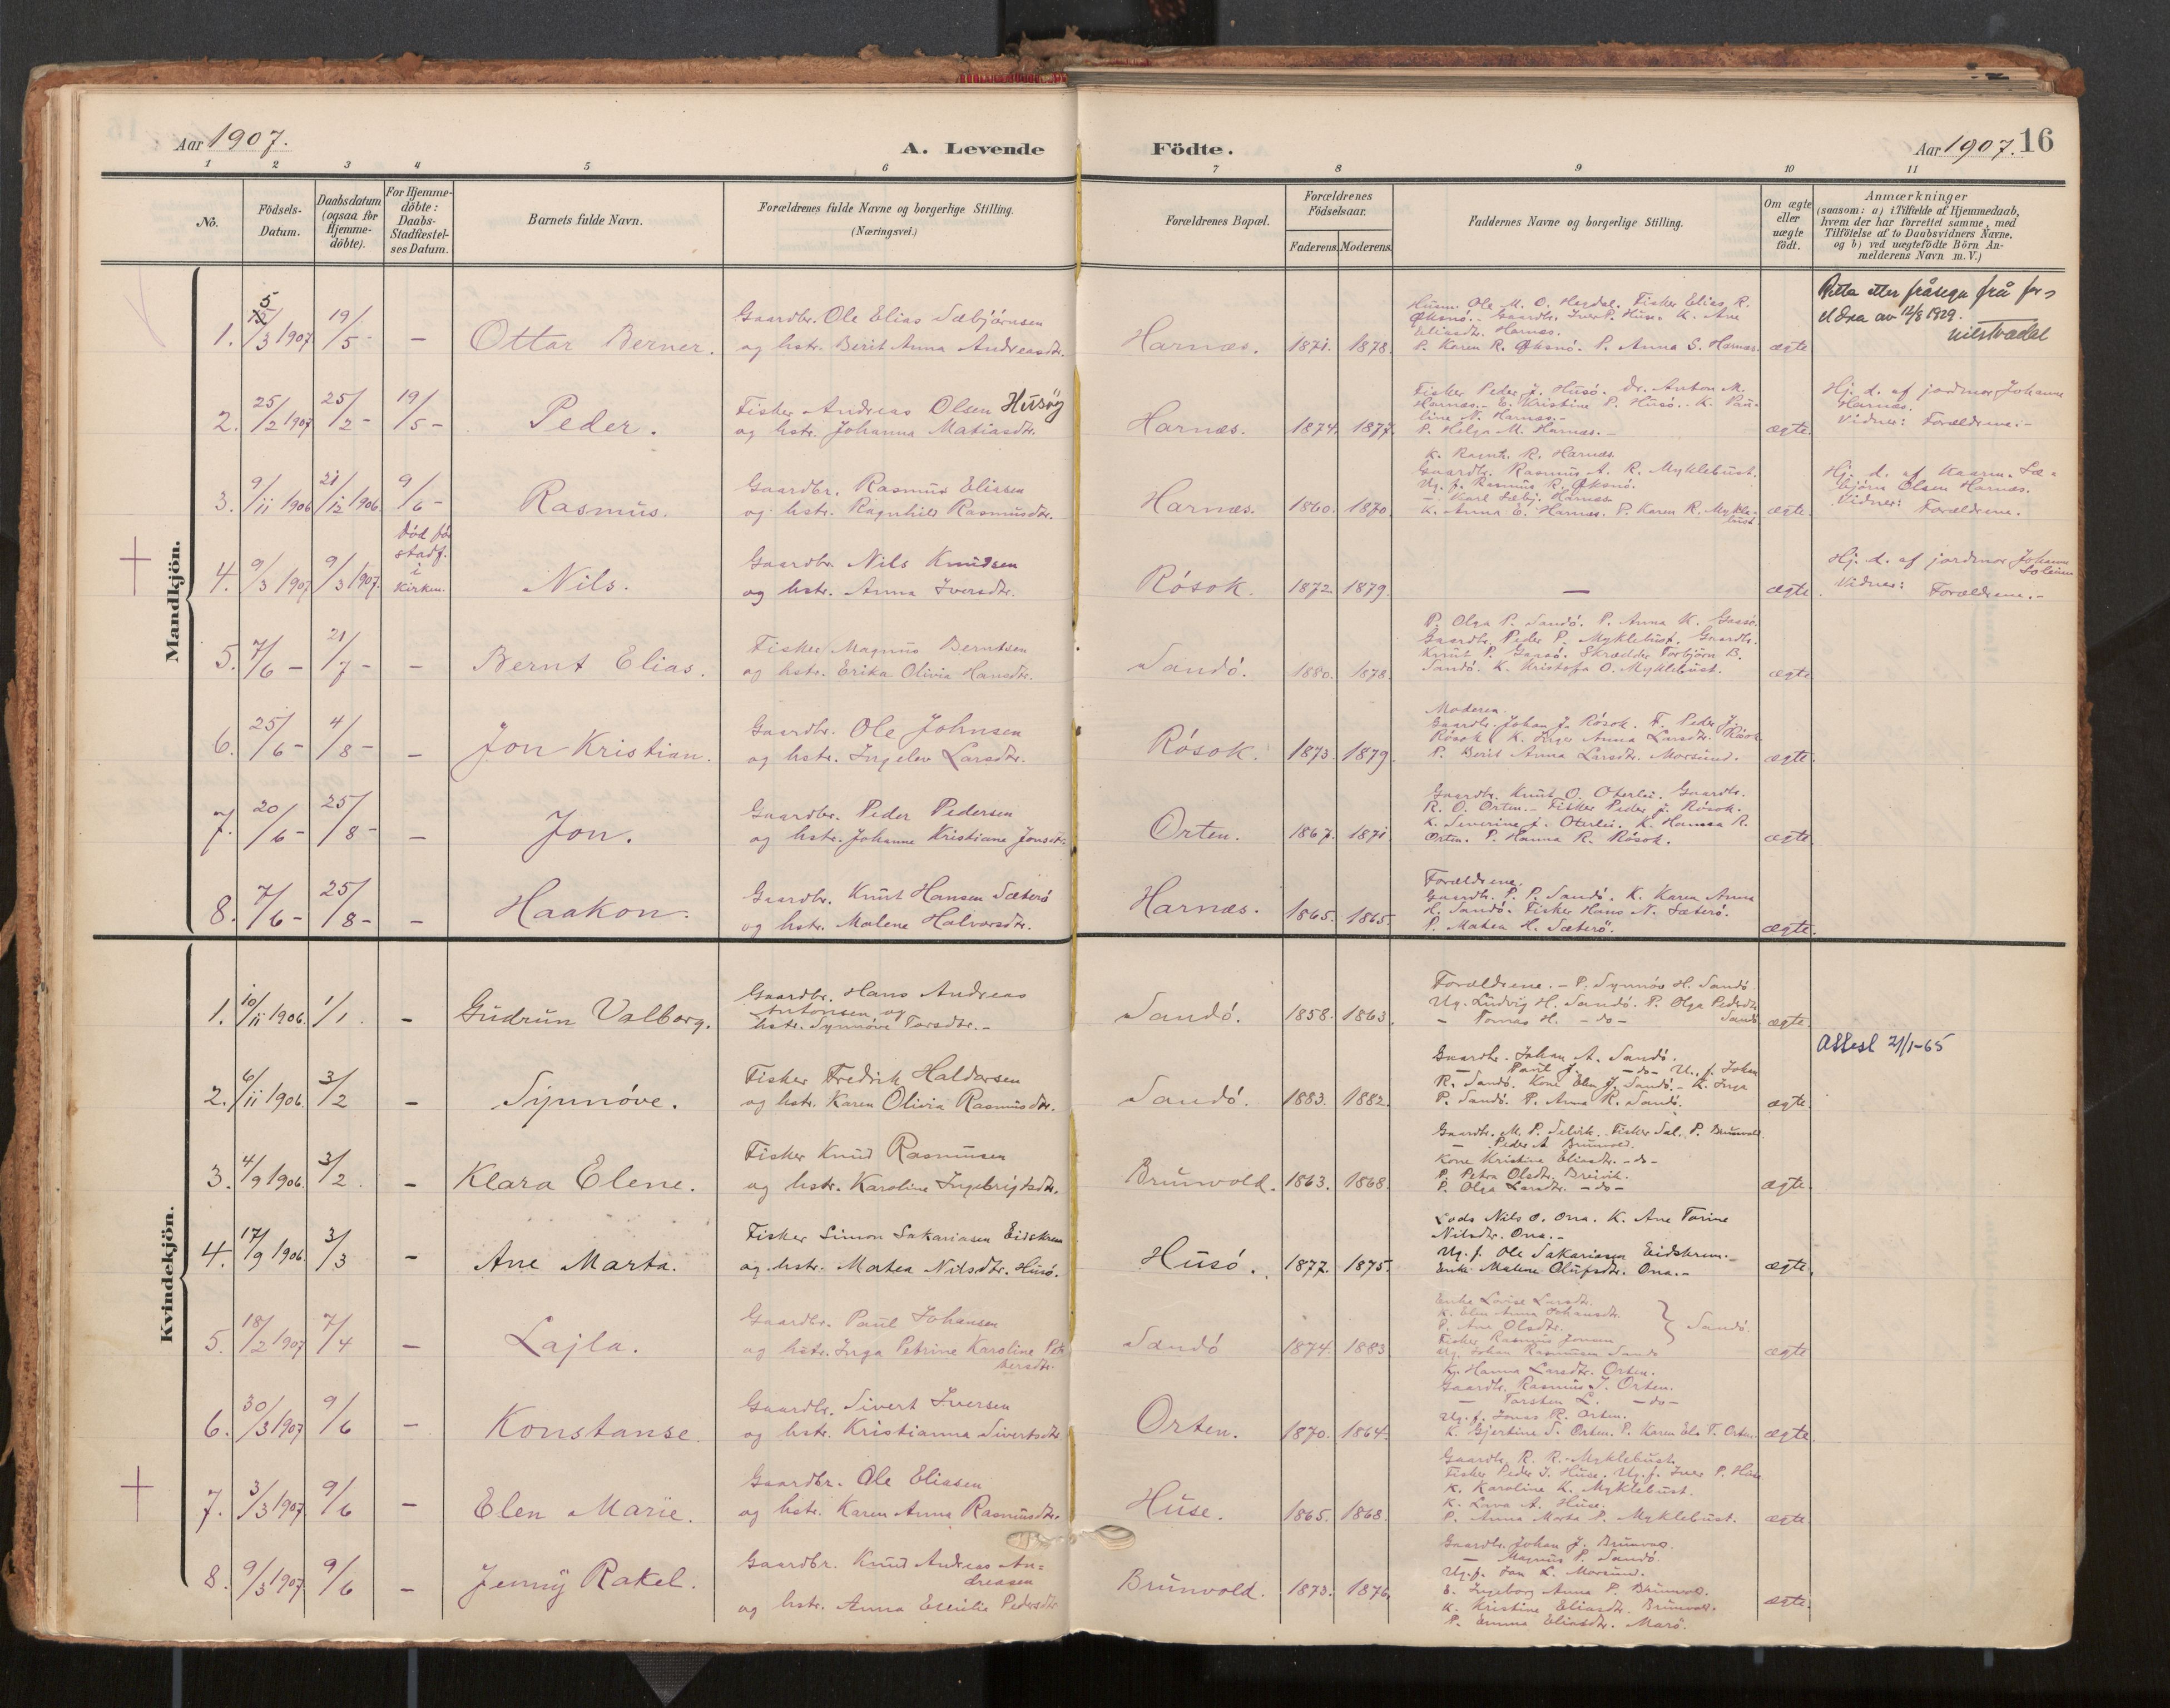 Aar 1907.
A. Levende Födte.
Aar 1907. 16
1 2 3 4 5 6 7 8 9 10 11
No.
Födsels-Datum.
Daabsdatum (ogsaa for Hjemme-döbte).
For Hjemme-döbte: Daabs-Stadfæstelses Datum.
Barnets fulde Navn.
Forældrenes fulde Navne og borgerlige Stilling. (Næringsvei.)
Forældrenes Bopæl.
Forældrenes Födselsaar.
Faderens. Moderens.
Faddernes Navne og borgerlige Stilling.
Om ægte eller uægte födt.
Anmærkninger
(saasom: a) i Tilfælde af Hjemmedaab,
hvem der har forrettet samme, med
Tilföielse af to Daabsvidners Navne,
og b) ved uægtefödte Börn An-
melderens Navn m.V.)
Mandkjön.
1. 5/3 1907 19/5 - - Ottar Berner.
Gaardbr. Ole Elias Sæbjörnsen
og hstr. Berit Anna Andreasdtr.
Harnæs. 1871. 1878.
Husm. Ole M. O. Hegdal. Fisker Elias R.
Öksnö. - Gaardbr. Iver P. Huse. K. Ane
Eliasdtr. Harnæs.
P. Karen R. Öksnö. P. Anna S. Harnæs. ægte
Retta etter fråsegn frå for-
eldra av 12/8 1929.
2. 25/2 1907 25/2 - 19/5 - Peder.
Fisker Andreas Olsen Husöy
og hstr. Johanna Matiasdtr.
Harnæs. 1874. 1877.
Fisker Peder J. Husö. Dr. Anton M.
Harnæs. - E. Kristine P. Husö. - K. Pau-
line N. Harnæs. -
P. Helga M. Harnæs. - ægte.
Hj. d. af jordmor Johanne
Harnæs.
Vidner: Forældrene. -
3. 9/11 1906 21/12 1906. 9/6 - Rasmus.
Gaardbr. Rasmus Eliasen
og hstr. Ragnhild Rasmusdtr.
Harnæs. 1860. 1870.
K. Ragnh. R. Harnæs.
Gaardbr. Rasmus A. R. Myklebust.
Ug. f. Rasmus R. Öksnö.
- Karl Sæbj. Harnæs.
K. Anna E. Harnæs. P. Karen R. Mykle-
bust. ægte.
Hj. d. af Kaarm. Sæ-
björn Olsen Harnæs.
Vidner: Forældrene.
4. 9/3 1907 9/3 1907. Död för stadf. i Kirken. Nils.
Gaardbr. Nils Knudsen
og hstr. Anna Iversdtr.
Rösok. 1872. 1879. - ægte.
Hj. d. af jordmor Johanne
Soleim
Vidner: Forældrene. -
5. 7/6 - 21/7 - - Bernt Elias.
Fisker Magnus Berntsen
og hstr. Erika Olivia Hansdtr.
Sandö. 1880. 1878.
P. Olga P. Sandö. P. Anna K. Gaasö.
Gaardbr. Peder P. Myklebust. Gaardbr.
Knut P. Gaasö. Skrædder Torbjörn B.
Sandö. K. Kristofa O. Myklebust. ægte
6. 25/6 - 4/8 - - Jon Kristian.
Gaardbr. Ole Johnsen
og hstr. Ingelev Larsdtr.
Rösok. 1873. 1879.
Moderen.
Gaardbr. Johan J. Rösok. F. Peder J.
Rösok. K. Inger Anna Larsdtr. Rösok
P. Berit Anna Larsdtr. Morsund. ægte.
7. 20/6 - 25/8 - - Jon.
Gaardbr. Peder Pedersen
og hstr. Johanne Kristiane Jonsdtr.
Orten. 1867. 1871.
Gaardbr. Knut O. Oterlei. Gaardbr.
R. O. Orten. - Fisker Peder J. Rösok.
K. Severine J. Oterlei. K. Hanna R.
Orten. P. Hanna R. Rösok. ægte.
8. 7/6 - 25/8 - - Haakon.
Gaardbr. Knut Hansen Sæterö
og hstr. Malene Halvorsdtr.
Harnæs. 1865. 1865.
Forældrene.
Gaardbr. P. P. Sandö. K. Karen Anna
H. Sandö. Fisker Hans N. Sæterö.
P. Matea H. Sæterö. ægte.
Kvindekjön.
1. 10/11 1906. 1/1. - Gudrun Valborg.
Gaardbr. Hans Andreas
Antonsen og
hstr. Synnöve Torsdtr. -
Sandö. 1858. 1863.
Forældrene. - P. Synnöv H. Sandö
Ug. Ludvig H. Sandö. P. Olga Pedsdtr.
- Tomas H. - do - Sandö. ægte.
Attest 21/1-65
2. 6/11 1906. 3/2 - Synnöve.
Fisker Fredrik Haldorsen
og hstr. Karen Olivia Rasmusdtr.
Sandö. 1883. 1882.
Gaardbr. Johan A. Sandö.
- Paul J. - do - U. f. Johan
R. Sandö. Kone Elen J. Sandö. - K. Inga
P. Sandö. P. Anna R. Sandö. ægte.
3. 4/9 1906. 3/2. - Klara Elene.
Fisker Knud Rasmusen
og hstr. Karoline Ingebrigtsdtr.
Brunvold. 1863. 1868.
Gaardbr. M. P. Selvik. Fisker Sal. P. Brunvold
- Peder A Brunvold.
Kone Kristine Eliasdtr. - do -
P. Petra Olsdtr. Breivik.
P. Olga Larsdtr. - do - ægte.
4. 17/9 1906. 3/3 - Ane Marta.
Fisker Simon Sakariasen Eidskrem
og hstr. Matea Nilsdtr. Husö.
Husö. 1877. 1875.
Lods Nils O. Ona. K. Ane Torine
Nilsdtr. Ona. -
Ug. f. Ole Sakariasen Eidskrem. -
Enke Malene Olufsdtr. Ona. - ægte.
5. 18/2 1907 7/4 - Lajla.
Gaardbr. Paul Johansen
og hstr. Inga Petrine Karoline Pet-
tersdtr.
Sandö 1874. 1883.
Enke Lovise Larsdtr.
K. Elen Anna Johansdtr.
P. Ane Olsdtr. } Sandö.
Fisker Rasmus Jonsen
Ug. Johan Rasmussen Sandö ægte
6. 30/3 1907 9/6 - Konstanse.
Gaardbr. Sivert Iversen
og hstr. Kristianna Sivertsdtr
Orten. 1870. 1864.
K. Hanna Larsdtr. Orten.
Gaardbr. Rasmus J. Orten.
- Torsten L. - do -
Ug. f. Jonas R. Orten.
K. Gjertine S. Orten. P. Karen El. T. Orten. ægte.
7. 3/3 1907. 9/6 - Elen Marie.
Gaardbr. Ole Eliasen
og hstr. Karen Anna Rasmusdtr.
Huse. 1865. 1868.
Gaardbr. R. R. Myklebust.
Fisker Peder I. Huse. Ug. f. Iver P. Huse
K. Karoline K. Myklebust.
K. Lava A. Huse.
P. Anna Marta P. Myklebust. ægte.
8. 9/3 1907 9/6 - Jenny Rakel.
Gaardbr. Knud Andreas An-
dreasen
og hstr. Anna Emilie Pedersdtr
Brunvold. 1873. 1876.
Gaardbr. Johan J. Brunvold.
- Magnus P. Sandö.
Ug. f. Jon L. Morsund.
E. Ingeborg Anna P. Brunvold.
K. Kristine Eliasdtr. Brunvold.
P. Emma Eliasdtr. Marö. ægte.